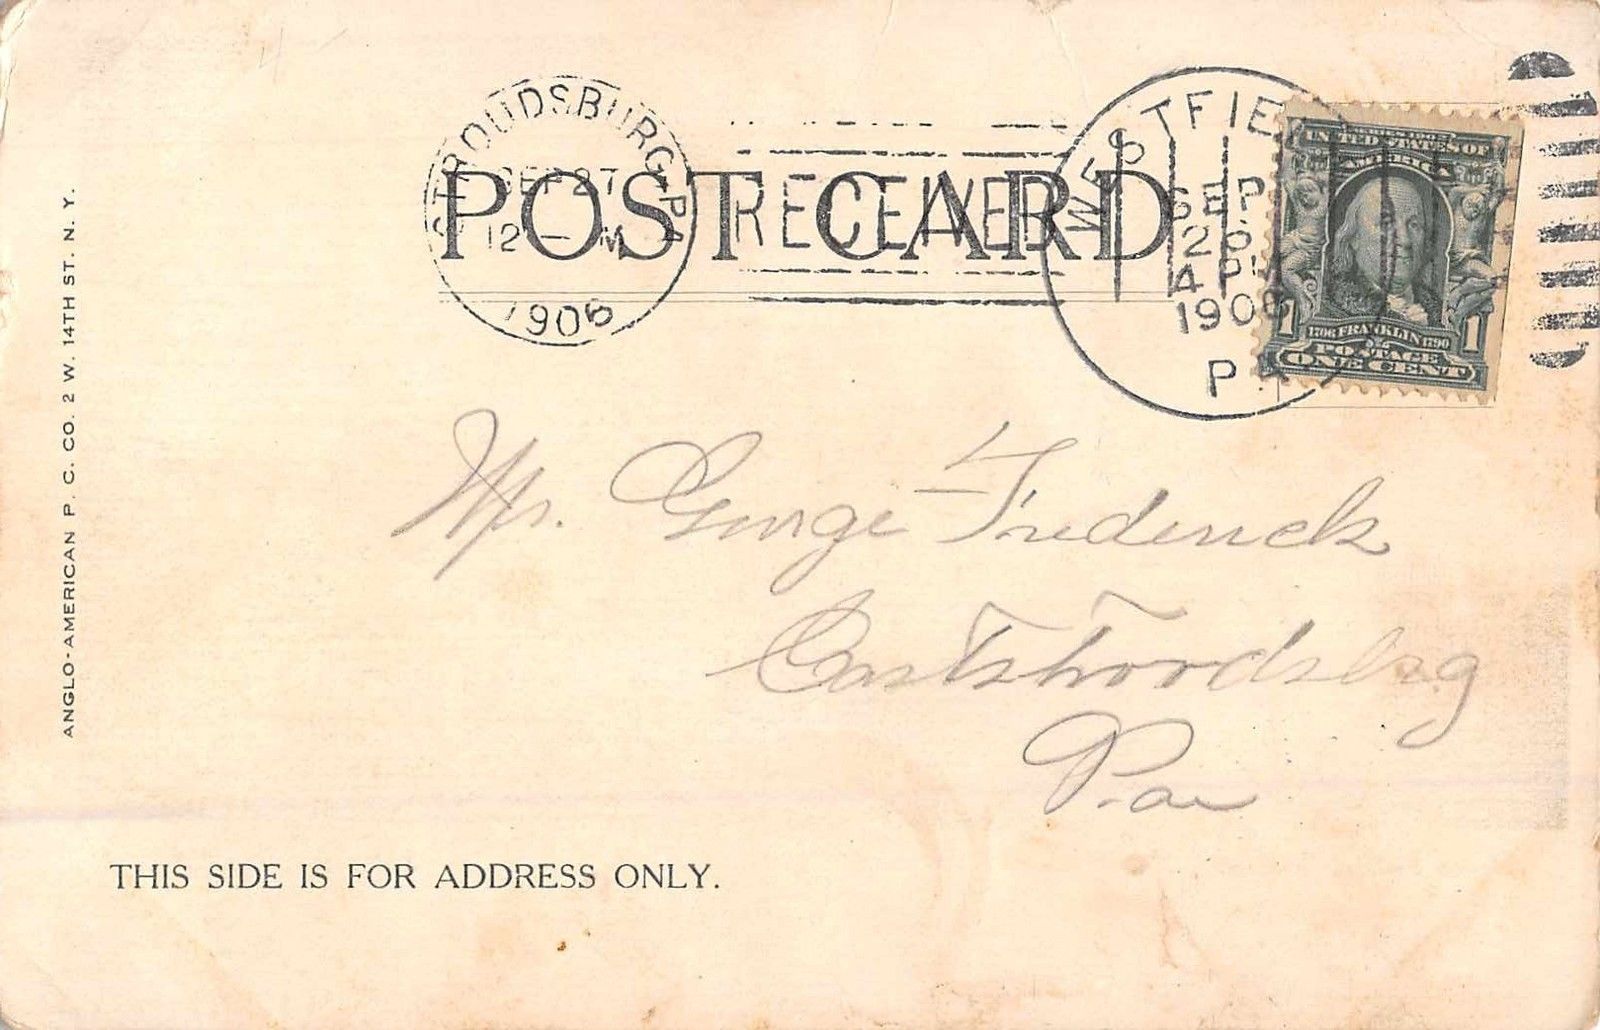 STROUDSBURG, PA.
SEP 27
12 — M
1906
POST CARD
RECEIVED
WESTFIELD
SEP
26
4 PM
1906
PA.
UNITED STATES OF
AMERICA
1 1706 FRANKLIN 1790 1
POSTAGE
ONE CENT
ANGLO-AMERICAN P. C. CO. 2 W. 14TH ST. N. Y.
Mr. George Frederick
East Stroudsburg
Pa
THIS SIDE IS FOR ADDRESS ONLY.